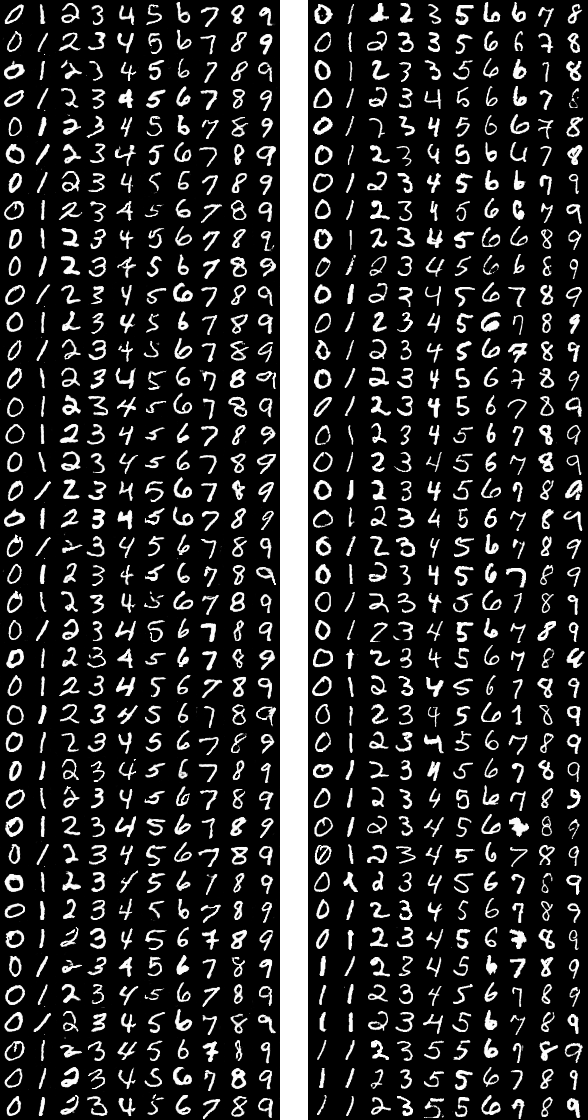 0 1 2 3 4 5 6 7 8 9
0 1 2 3 4 5 6 7 8 9
0 1 2 3 4 5 6 7 8 9
0 1 2 3 4 5 6 7 8 9
0 1 2 3 4 5 6 7 8 9
0 1 2 3 4 5 6 7 8 9
0 1 2 3 4 5 6 7 8 9
0 1 2 3 4 5 6 7 8 9
0 1 2 3 4 5 6 7 8 9
0 1 2 3 4 5 6 7 8 9
0 1 2 3 4 5 6 7 8 9
0 1 2 3 4 5 6 7 8 9
0 1 2 3 4 5 6 7 8 9
0 1 2 3 4 5 6 7 8 9
0 1 2 3 4 5 6 7 8 9
0 1 2 3 4 5 6 7 8 9
0 1 2 3 4 5 6 7 8 9
0 1 2 3 4 5 6 7 8 9
0 1 2 3 4 5 6 7 8 9
0 1 2 3 4 5 6 7 8 9
0 1 2 3 4 5 6 7 8 9
0 1 2 3 4 5 6 7 8 9
0 1 2 3 4 5 6 7 8 9
0 1 2 3 4 5 6 7 8 9
0 1 2 3 4 5 6 7 8 9
0 1 2 3 4 5 6 7 8 9
0 1 2 3 4 5 6 7 8 9
0 1 2 3 4 5 6 7 8 9
0 1 2 3 4 5 6 7 8 9
0 1 2 3 4 5 6 7 8 9
0 1 2 3 4 5 6 7 8 9
0 1 2 3 4 5 6 7 8 9
0 1 2 3 4 5 6 7 8 9
0 1 2 3 4 5 6 7 8 9
0 1 2 3 4 5 6 7 8 9
0 1 2 3 4 5 6 7 8 9
0 1 2 3 4 5 6 7 8 9
0 1 2 3 4 5 6 7 8 9
0 1 2 3 4 5 6 7 8 9
0 1 2 3 4 5 6 7 8 9
0 1 2 2 3 5 6 6 7 8
0 1 2 3 3 5 6 6 7 8
0 1 2 3 3 5 6 6 7 8
0 1 2 3 4 5 6 6 7 8
0 1 7 3 4 5 6 6 7 8
0 1 2 3 4 5 6 6 7 8
0 1 2 3 4 5 6 6 7 9
0 1 2 3 4 5 6 6 7 9
0 1 2 3 4 5 6 6 8 9
0 1 2 3 4 5 6 6 8 9
0 1 2 3 4 5 6 7 8 9
0 1 2 3 4 5 6 7 8 9
0 1 2 3 4 5 6 7 8 9
0 1 2 3 4 5 6 7 8 9
0 1 2 3 4 5 6 7 8 9
0 1 2 3 4 5 6 7 8 9
0 1 2 3 4 5 6 7 8 9
0 1 2 3 4 5 6 7 8 9
0 1 2 3 4 5 6 7 8 9
0 1 2 3 4 5 6 7 8 9
0 1 2 3 4 5 6 7 8 9
0 1 2 3 4 5 6 7 8 9
0 1 2 3 4 5 6 7 8 9
0 1 2 3 4 5 6 7 8 9
0 1 2 3 4 5 6 7 8 9
0 1 2 3 4 5 6 1 8 9
0 1 2 3 4 5 6 7 8 9
0 1 2 3 4 5 6 7 8 9
0 1 2 3 4 5 6 7 8 9
0 1 2 3 4 5 6 7 8 9
0 1 2 3 4 5 6 7 8 9
0 1 2 3 4 5 6 7 8 9
0 1 2 3 4 5 6 7 8 9
0 1 2 3 4 5 6 7 8 9
1 1 2 3 4 5 6 7 8 9
1 1 2 3 4 5 6 7 8 9
1 1 2 3 4 5 6 7 8 9
1 1 2 3 5 5 6 7 8 9
1 1 2 3 5 5 6 7 8 9
1 1 2 3 5 5 6 7 8 9